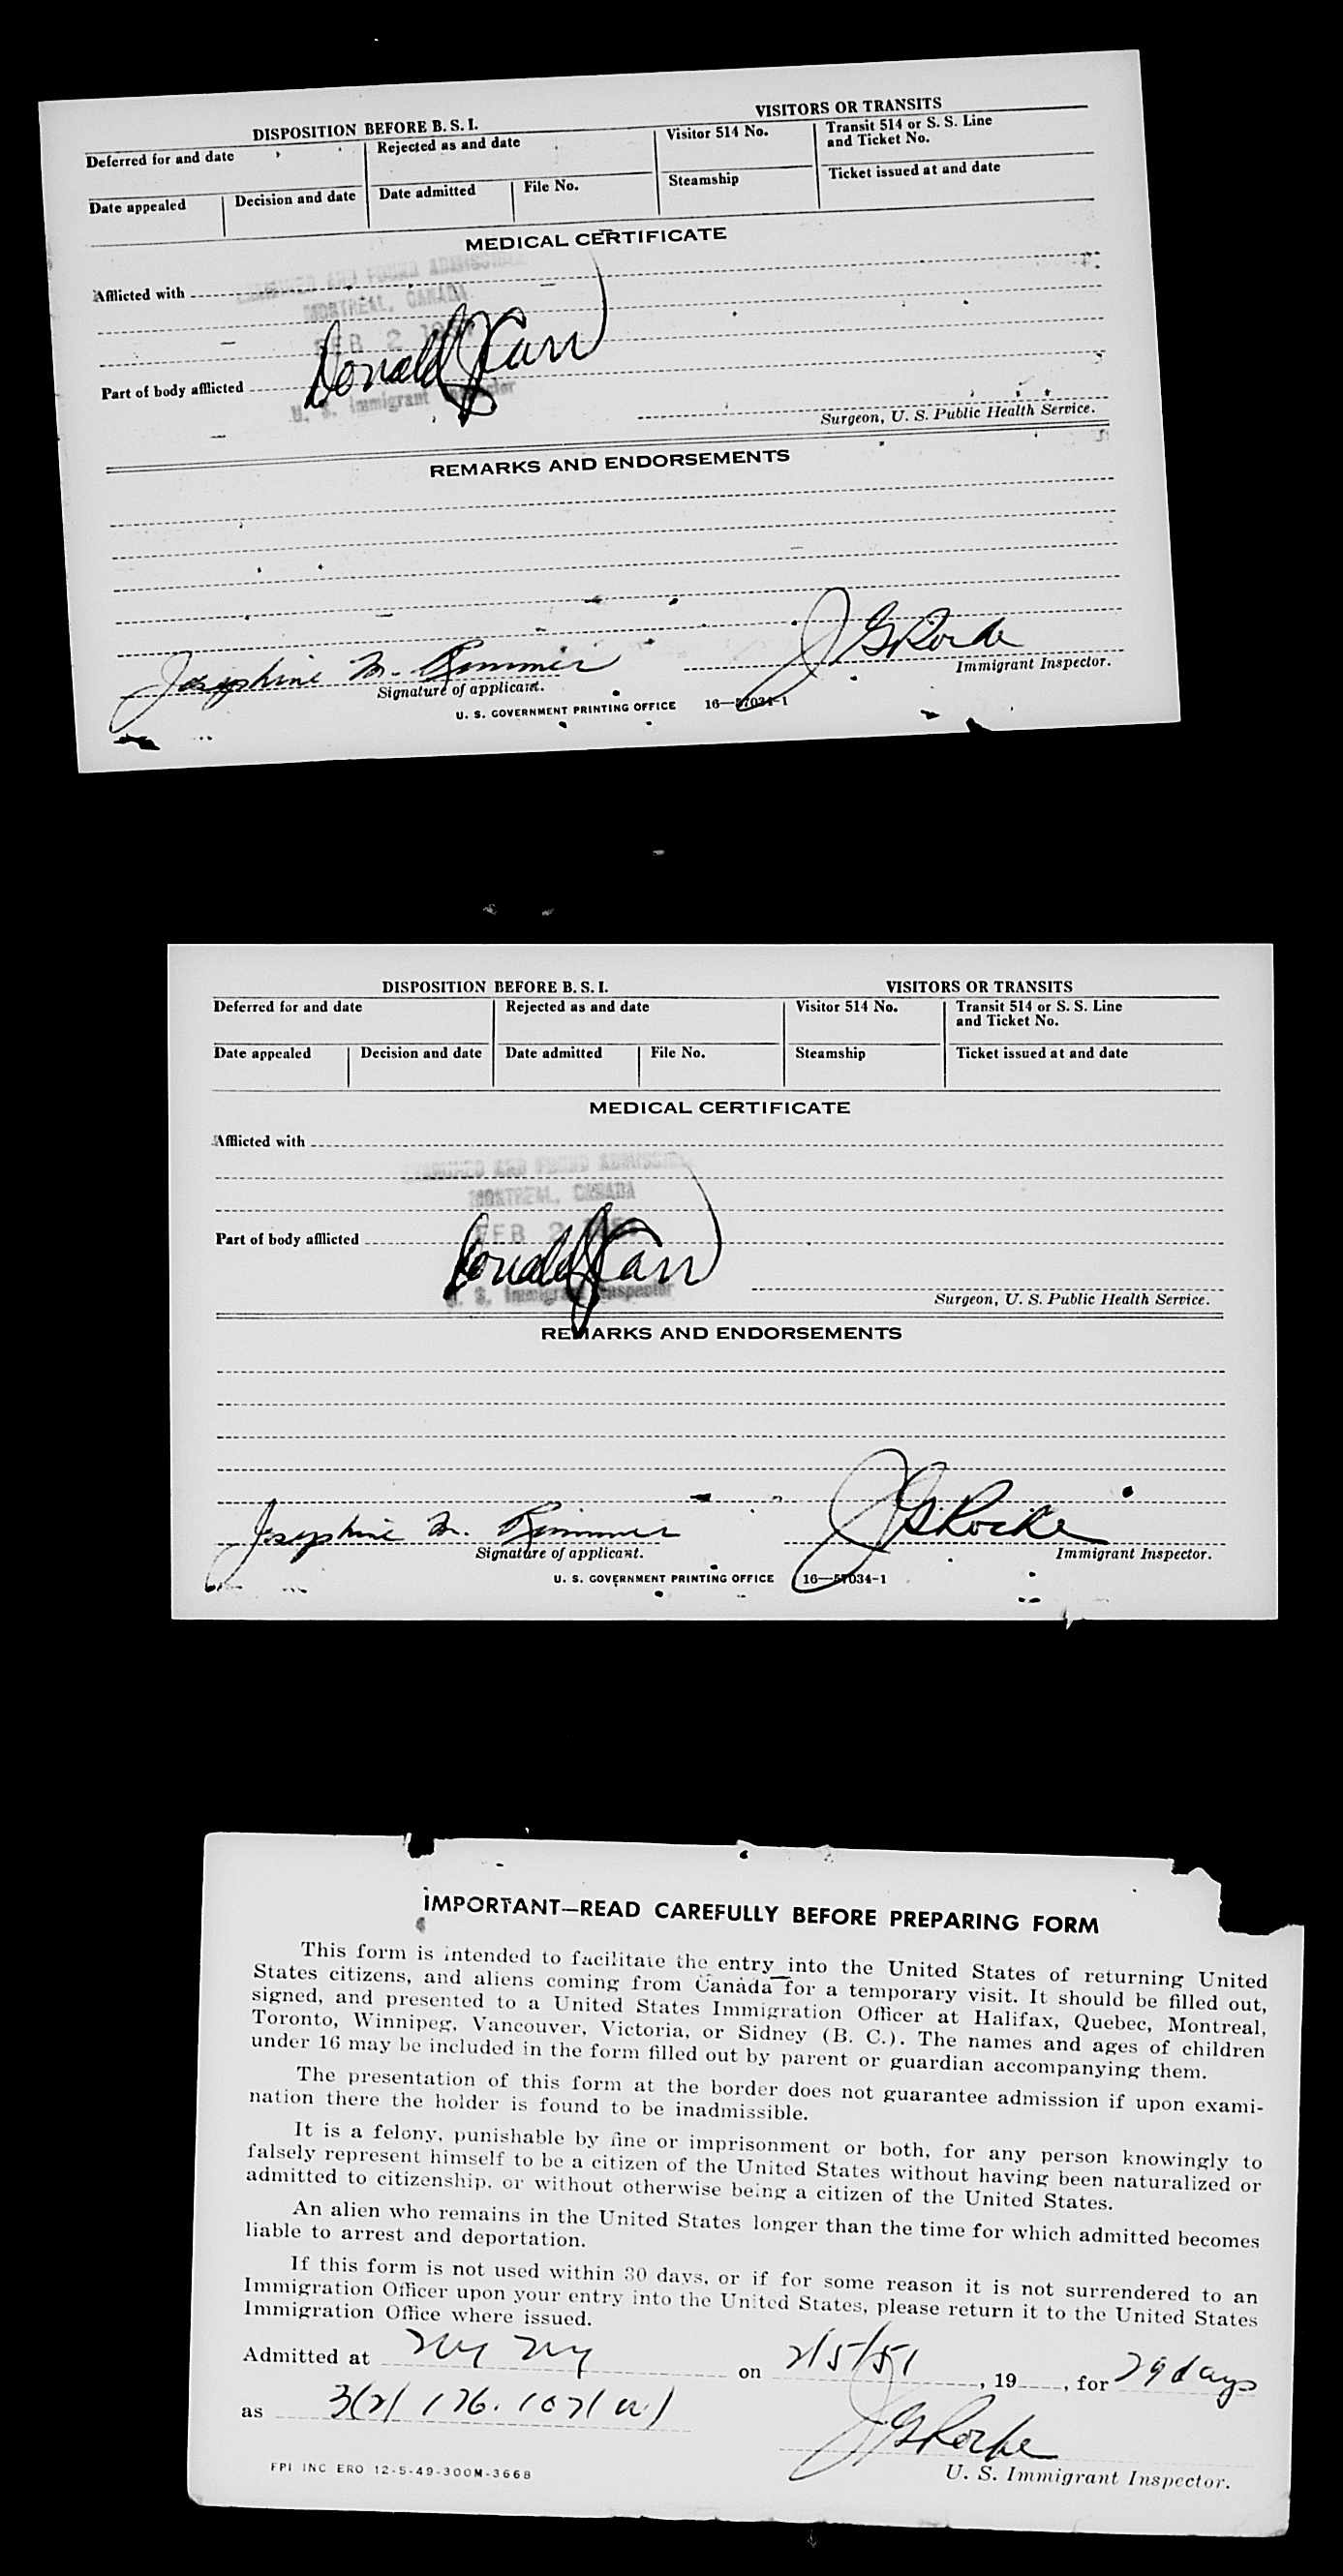 DISPOSITION BEFORE B. S. I.
VISITORS OR TRANSITS
Deferred for and date
Rejected as and date
Visitor 514 No.
Transit 514 or S. S. Line
and Ticket No.
Date appealed
Decision and date
Date admitted
File No.
Steamship
Ticket issued at and date
MEDICAL CERTIFICATE
Afflicted with
AND FOUND
MONTREAL, CANADA
FEB 2
Donald J Carr
Part of body afflicted
U. S. Immigrant Inspector
Surgeon, U. S. Public Health Service.
REMARKS AND ENDORSEMENTS
Josephine M. Rimmer
J G Rocke
Signature of applicant.
Immigrant Inspector.
U. S. GOVERNMENT PRINTING OFFICE 16—57034-1
DISPOSITION BEFORE B. S. I.
VISITORS OR TRANSITS
Deferred for and date
Rejected as and date
Visitor 514 No.
Transit 514 or S. S. Line
and Ticket No.
Date appealed
Decision and date
Date admitted
File No.
Steamship
Ticket issued at and date
MEDICAL CERTIFICATE
Afflicted with
AND FOUND
MONTREAL, CANADA
FEB 2
Part of body afflicted
Donald J Carr
U. S. Immigrant Inspector
Surgeon, U. S. Public Health Service.
REMARKS AND ENDORSEMENTS
Josephine M. Rimmer
J G Rocke
Signature of applicant.
Immigrant Inspector.
U. S. GOVERNMENT PRINTING OFFICE 16—57034-1
IMPORTANT—READ CAREFULLY BEFORE PREPARING FORM
This form is intended to facilitate the entry into the United States of returning United
States citizens, and aliens coming from Canada for a temporary visit. It should be filled out,
signed, and presented to a United States Immigration Officer at Halifax, Quebec, Montreal,
Toronto, Winnipeg, Vancouver, Victoria, or Sidney (B. C.). The names and ages of children
under 16 may be included in the form filled out by parent or guardian accompanying them.
The presentation of this form at the border does not guarantee admission if upon exami-
nation there the holder is found to be inadmissible.
It is a felony, punishable by fine or imprisonment or both, for any person knowingly to
falsely represent himself to be a citizen of the United States without having been naturalized or
admitted to citizenship, or without otherwise being a citizen of the United States.
An alien who remains in the United States longer than the time for which admitted becomes
liable to arrest and deportation.
If this form is not used within 30 days, or if for some reason it is not surrendered to an
Immigration Officer upon your entry into the United States, please return it to the United States
Immigration Office where issued.
Admitted at NY NY on 2/5/51, 19 , for 29 days
as 3(2) 176.107(a)
J G Rocke
U. S. Immigrant Inspector.
FPI INC ERO 12-5-49-300M-3668